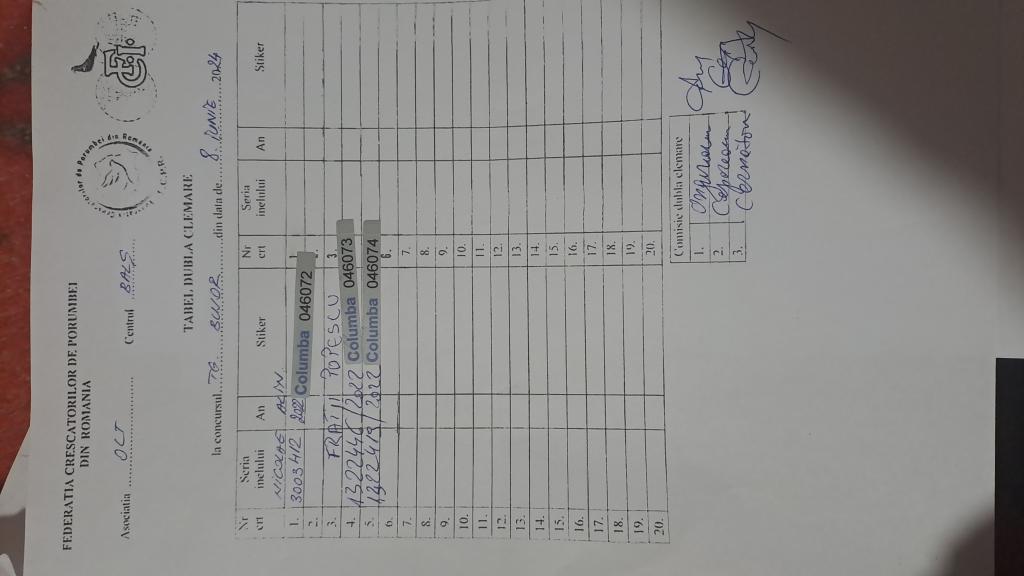 FEDERATIA CRESCATORILOR DE PORUMBEI
DIN ROMANIA
Asociatia OLT Centrul BALS
TABEL DUBLA CLEMARE
la concursul TG BUJOR din data de 8 IUNIE 2024
Nr crt Seria inelului An Stiker Nr crt Seria inelului An Stiker
NICOLAE ALIN
1. 3003412 202 Columba 046072 1.
2. 2.
3. FRATII POPESCU 3.
4. 1322446/2022 Columba 046073
5. 1322419/2022 Columba 046074
6. 6.
7. 7.
8. 8.
9. 9.
10. 10.
11. 11.
12. 12.
13. 13.
14. 14.
15. 15.
16. 16.
17. 17.
18. 18.
19. 19.
20. 20.
Comisie dubla clemare
1.
2.
3.